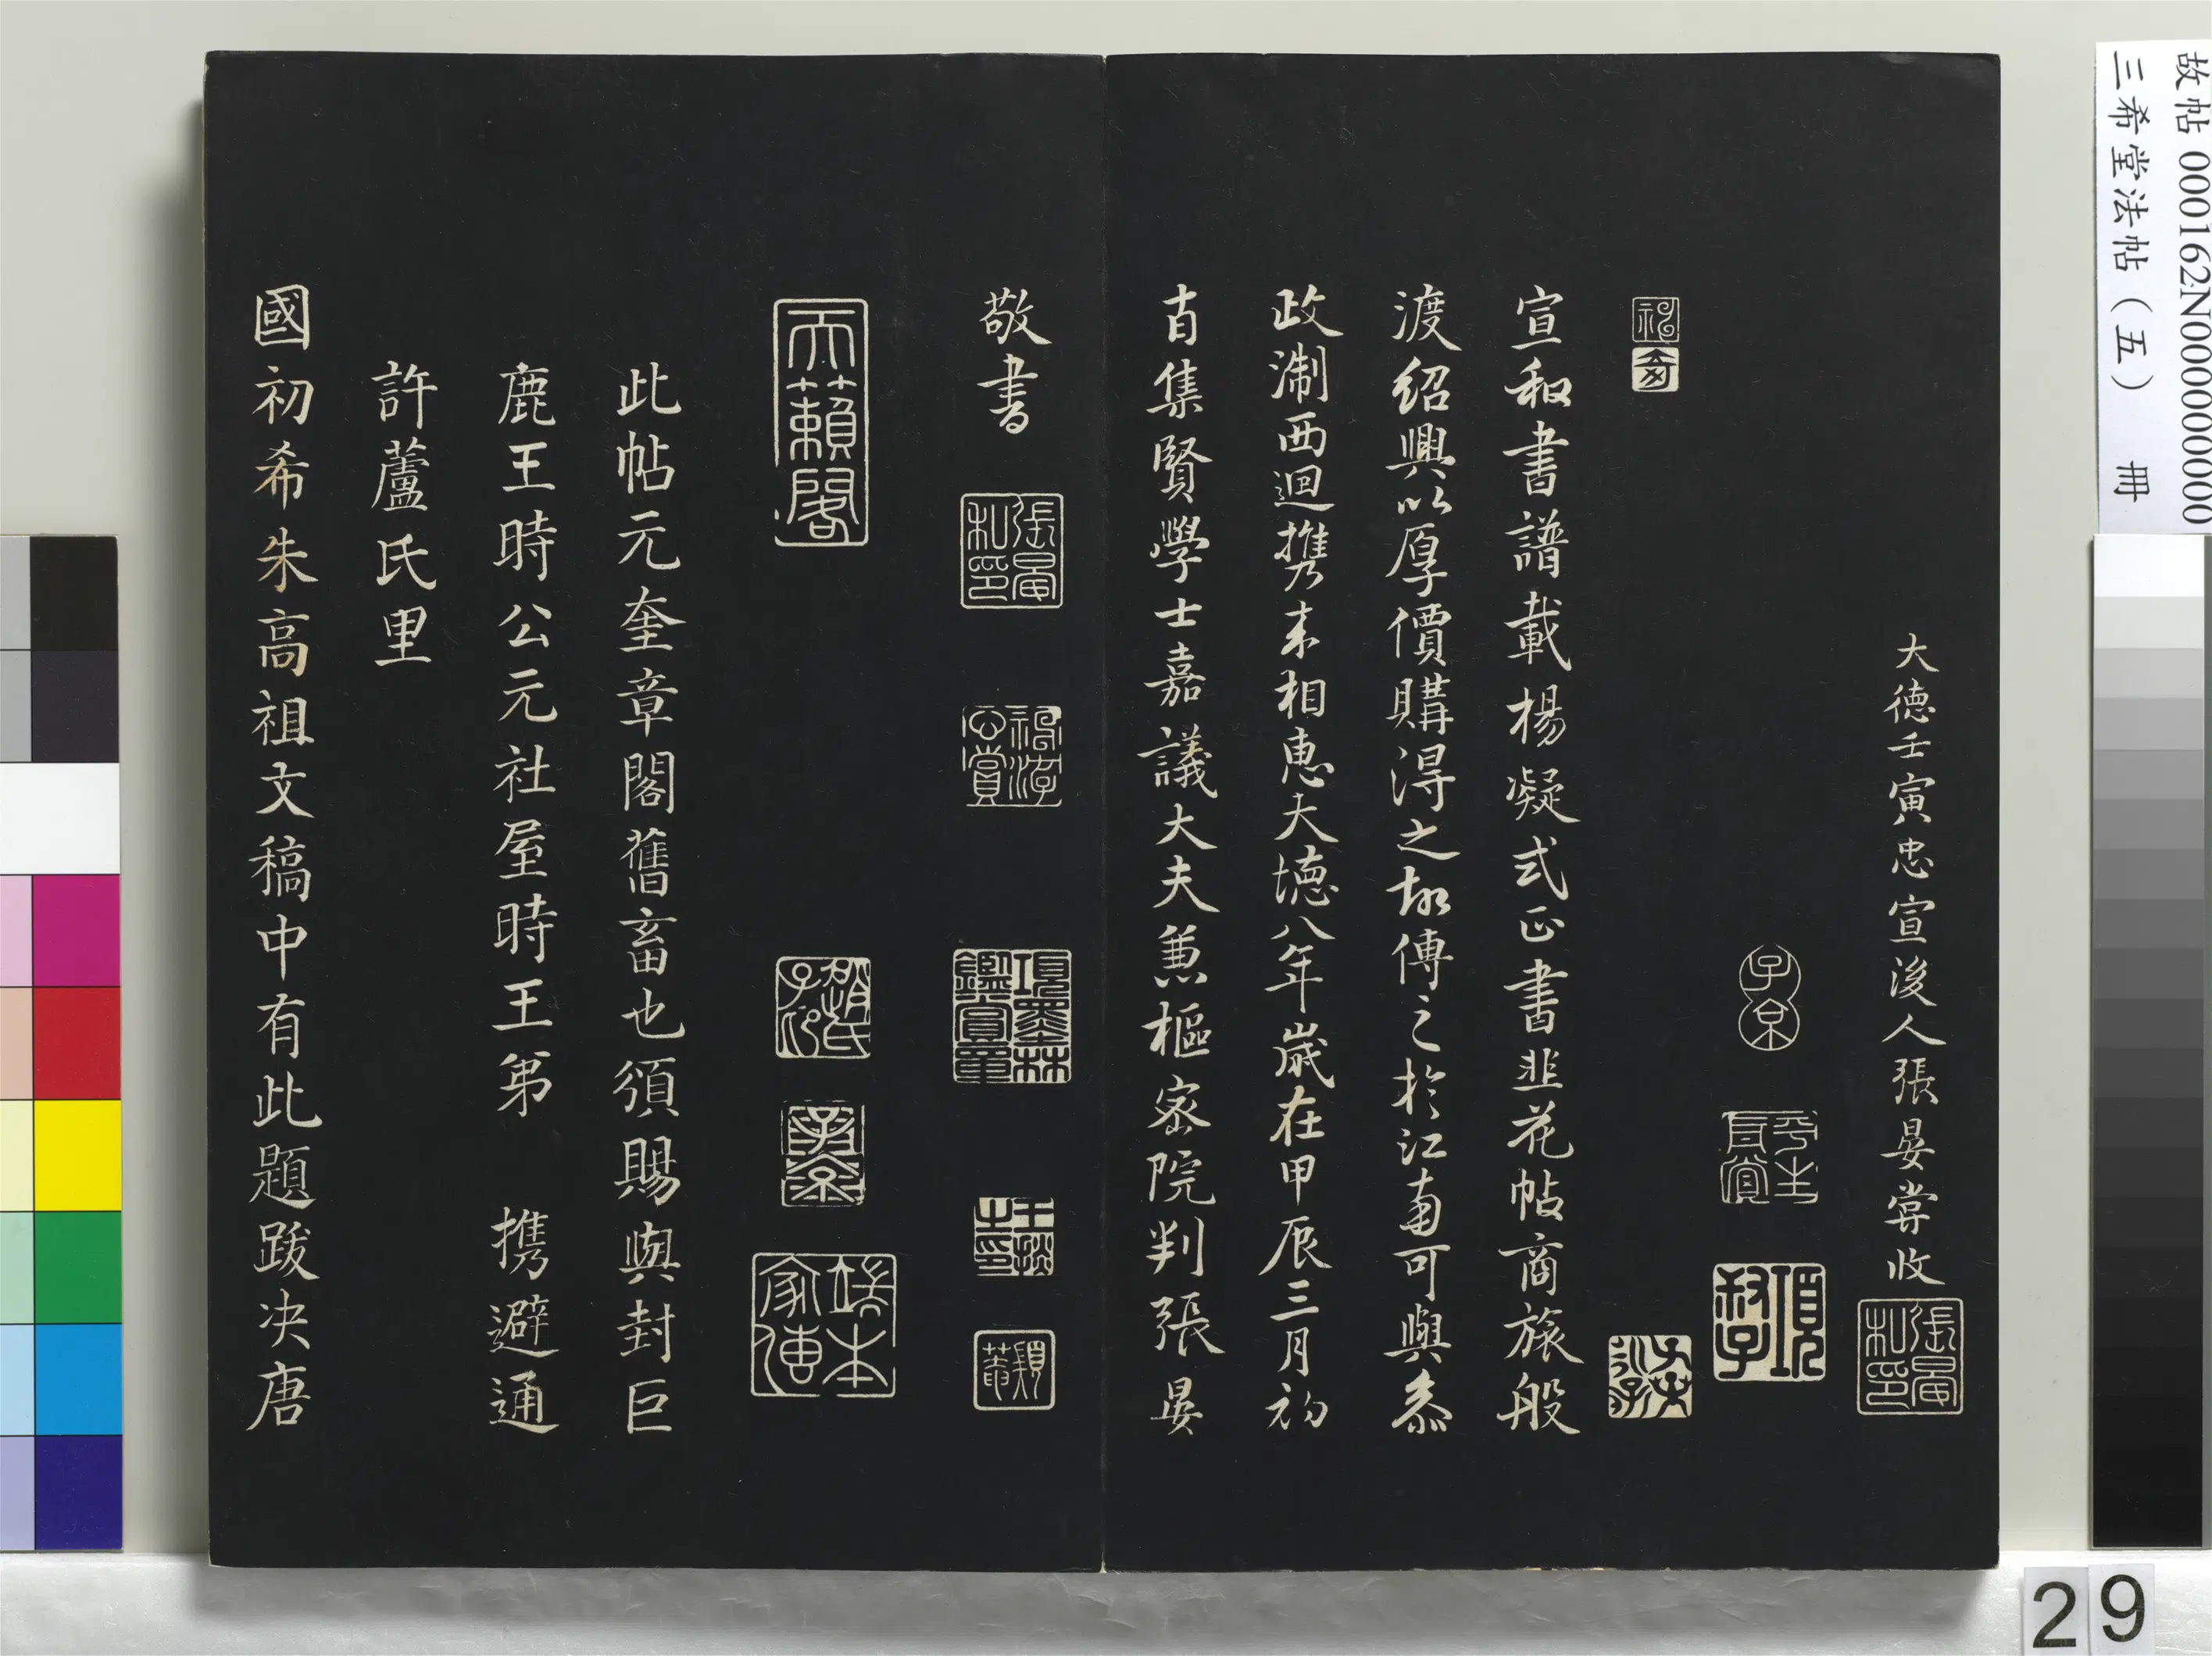 故帖 000162N000000000
三希堂法帖（五） 冊
大德壬寅忠宣後人張晏嘗收
張晏私印
子京
平生真賞
宣和書譜載楊凝式正書韭花帖商旅般
渡紹興以厚價購得之故傳之於江南可與叅
政淛西迴携来相惠大德八年歲在甲辰三月初
吉集賢學士嘉議大夫兼樞密院判張晏
敬書
張晏私印
項墨林鑑賞章
天籟閣
此帖元奎章閣舊畜也頒賜與封巨
鹿王時公元社屋時王弟 携避通
許蘆氏里
國初希朱高祖文稿中有此題跋决唐
29